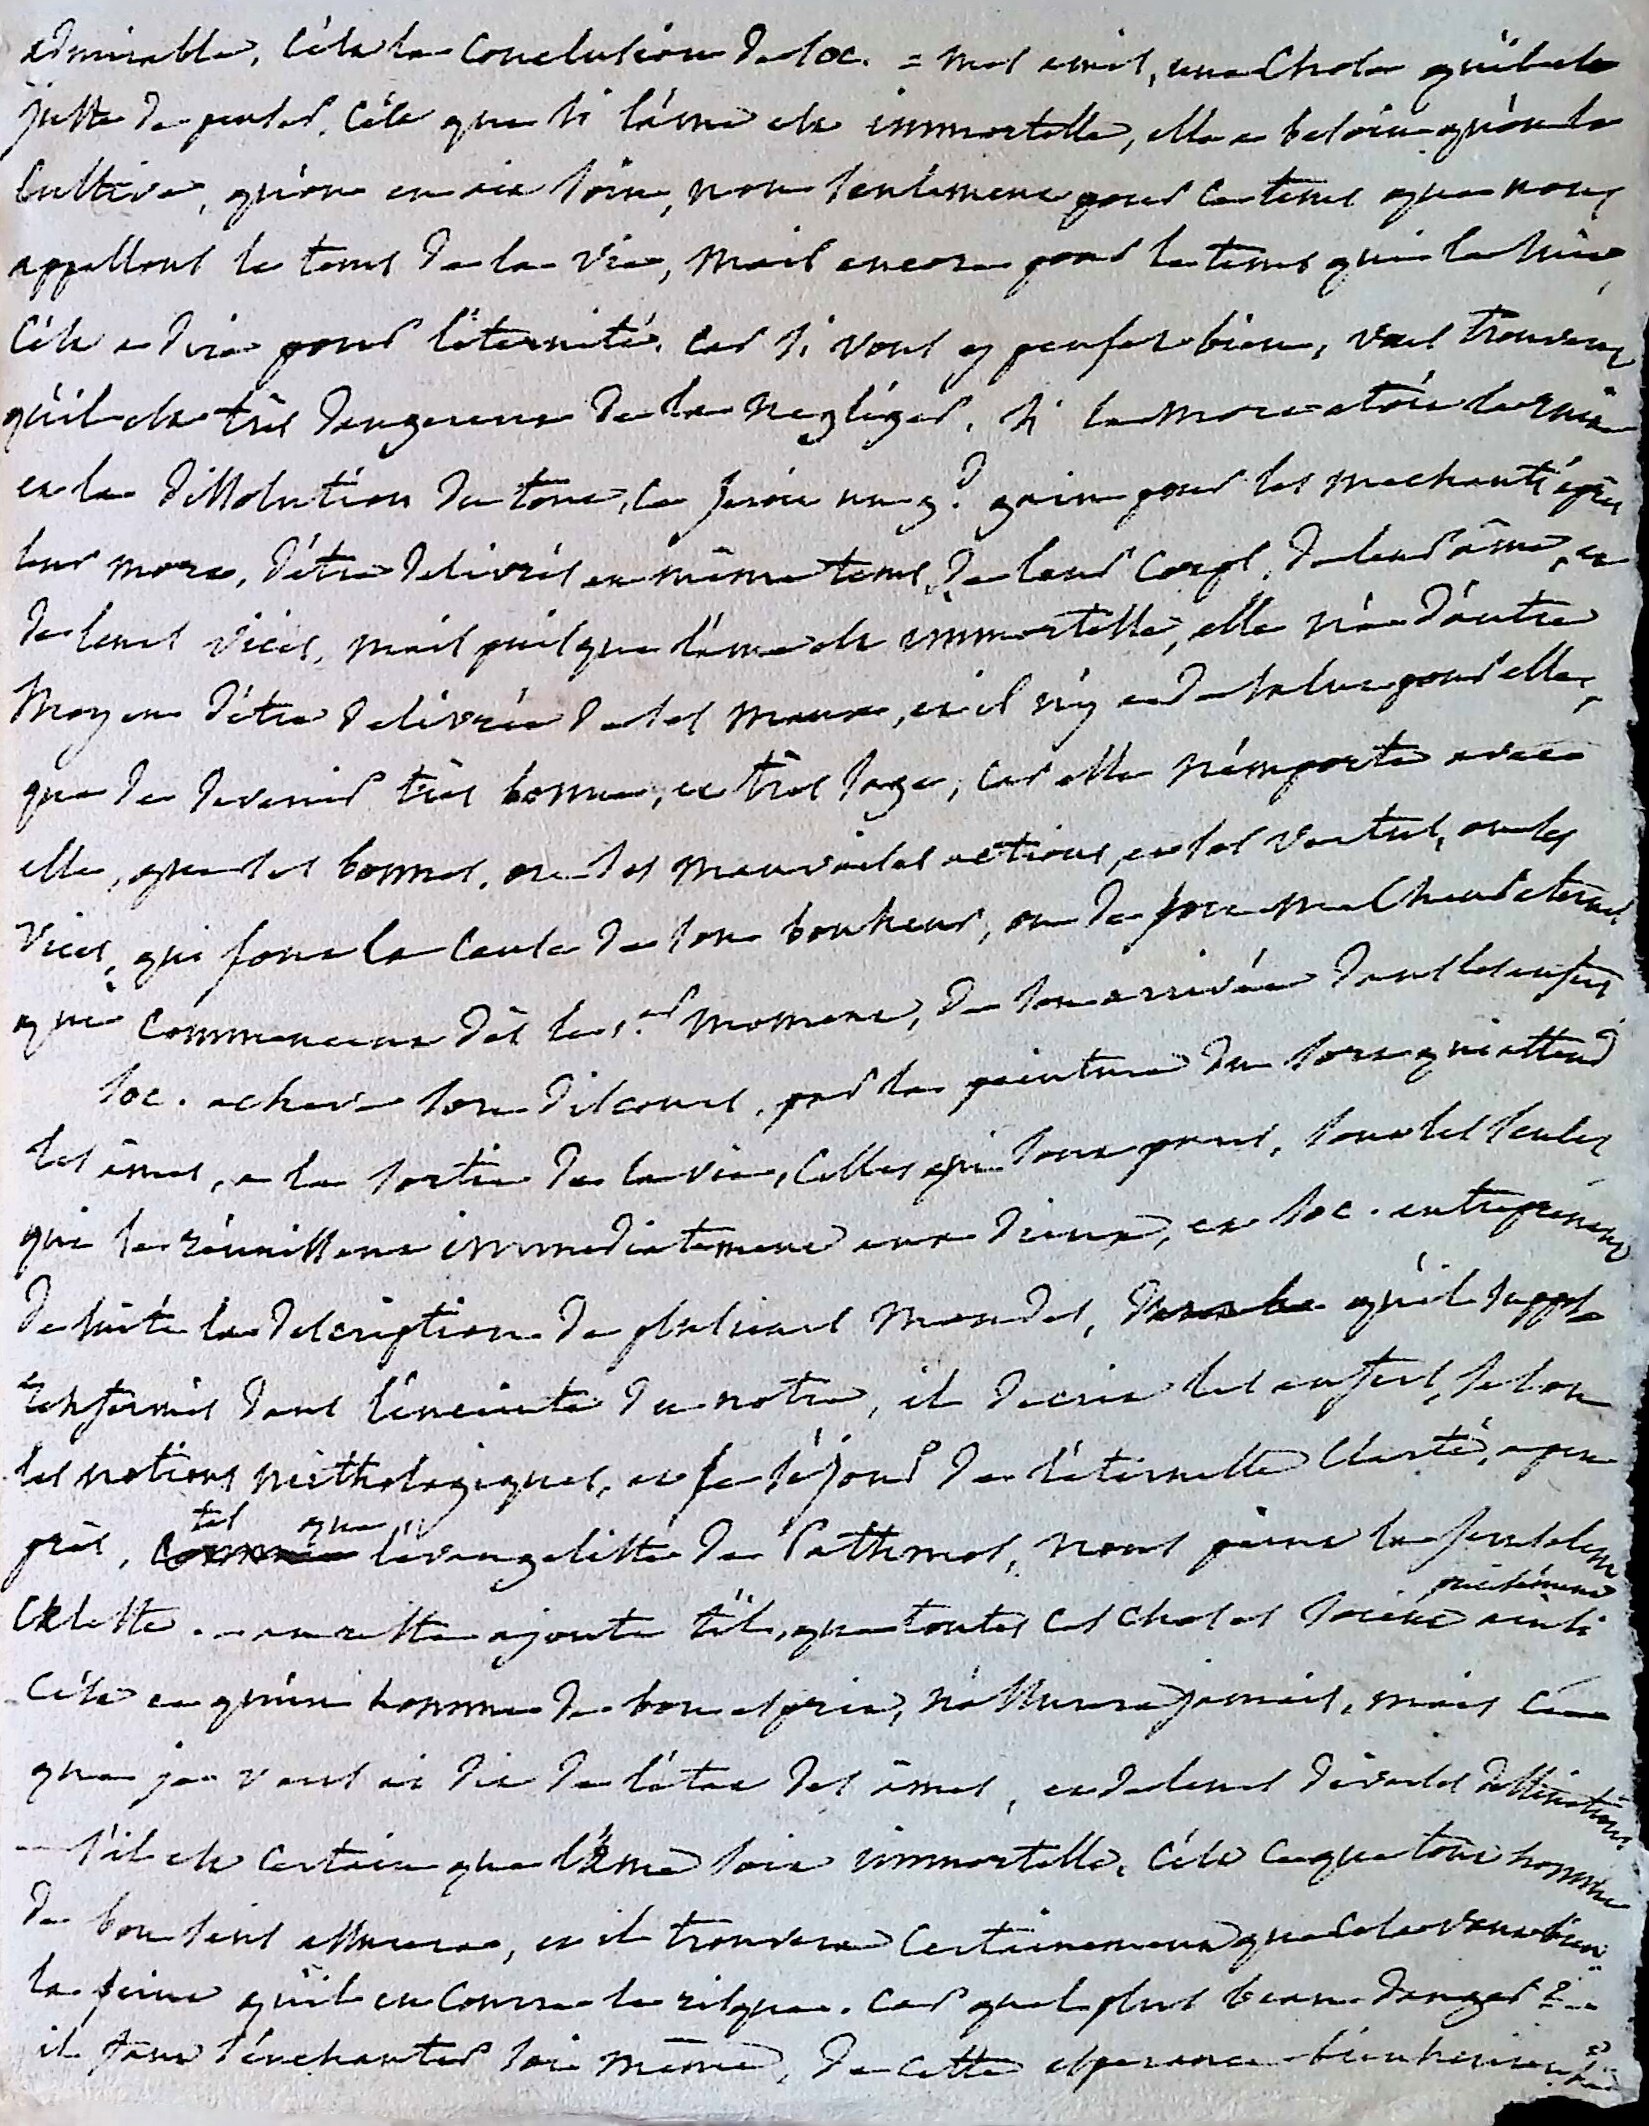 admirable, c'éste la conclusion de soc. = mes amis, une chose qu'il est
juste de penser, c'ést que si l'âme est immortelle, elle a besoin qu'on la
cultive, qu'on en ait soin, non seulement pour ce tems que nous
appellons le tems de la vie, mais encore pour le tems qui la suit,
c'ést a dire pour l'éternité. car si vous y pensez bien, vous trouverez
qu'il est très dangereux de la negliger. si la mort etóit la ruine
et la dissolution du tout, ce seroit un gd. gain pour les mechants après
leur mort, d'être delivrés en même tems, de leur corps, de leur âme, et
de leurs vices, mais puisque l'ame est immortelle, elle n'a d'autre
moyen d'être delivrée de ses maux, et il n'y a de salut pour elle,
que de devenir très bonne, et très sage, car elle n'emporte avec
elle, que ses bonnes, ou ses mauvaises actions, et ses vertus, ou ses
vices, qui sont la cause de son bonheur, ou de son malheur eternel
qui commencent dès le 1er moment, de son arrivée dans les enfers
soc. acheve son discours, par la peinture du sort qui attend
les âmes, a la sortie de la vie, celles qui sont pures, sont les seules
qui se réunissent immediatement aux dieux, et soc. entreprenant
de suite la description de plusieurs mondes, qu'il suppose
renfermés dans l'enceinte du notre, il decrit les enfers, selon
les notions mithologiques, et le séjour de l'éternelle clarté, a peu
près, tel que l'évangeliste de Pathmos, nous peint la jerusalem
celeste. - au reste ajoute t'il, que toutes ces choses soient précisément ainsi
c'ést ce qu'un homme de bon esprit, n'assurera jamais, mais ce
que je vous ai dit de l'état des âmes, et de leurs diverses destinations
s'il est certain que l'âme soit immortelle, c'ést ce que tout homme
de bon sens assurera, et il trouvera certainement que cela vaut bien
la peine qu'il en coure le risque. car quel plus beau danger? -
il faut s'enchanter soi même, de cette esperance bienheureuse